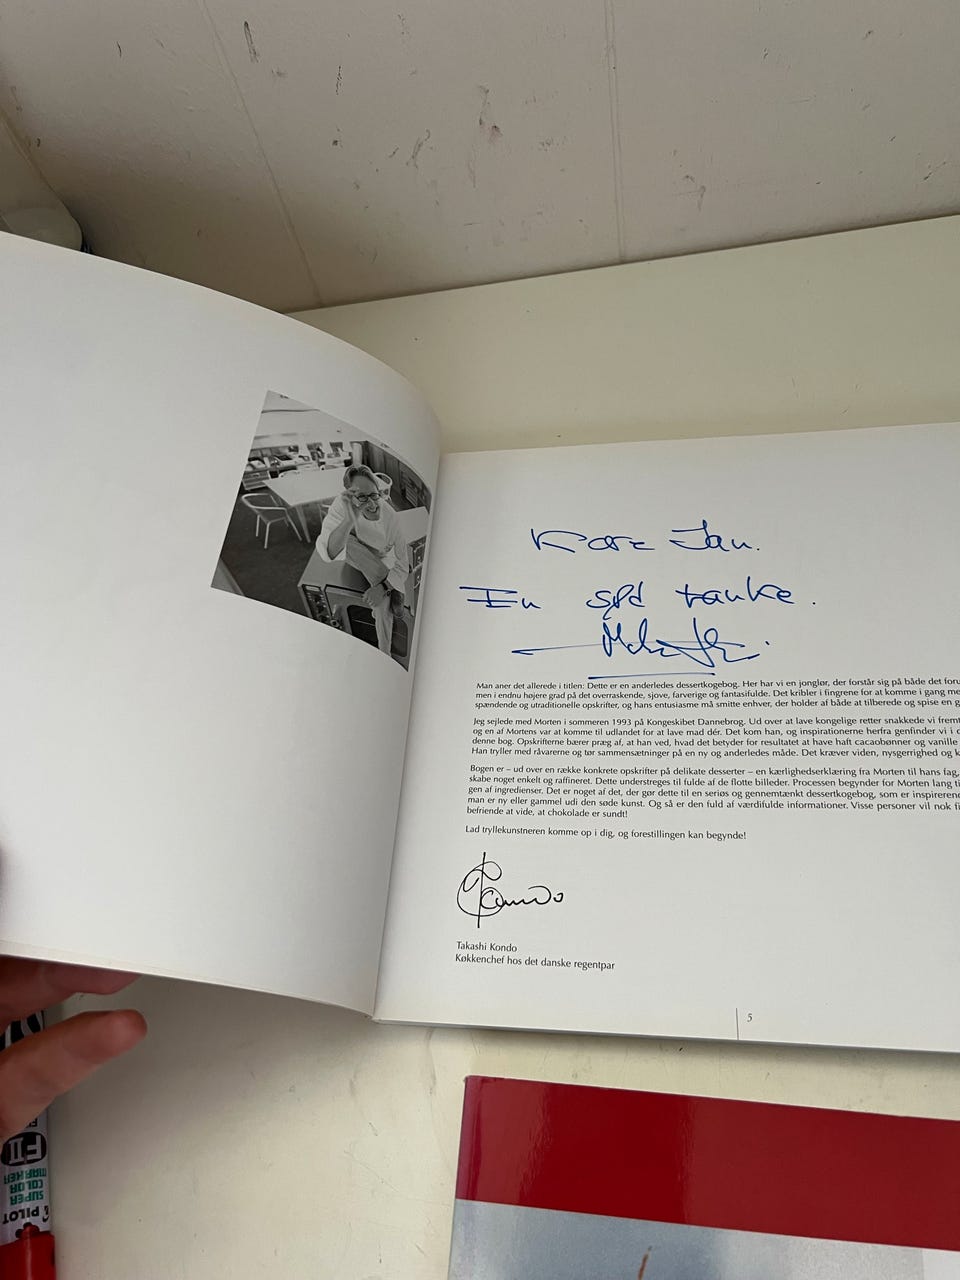 Kære Jan.
En sød tanke.
Man aner det allerede i titlen: Dette er en anderledes dessertkogebog. Her har vi en jonglør, der forstår sig på både det
men i endnu højere grad på det overraskende, sjove, farverige og fantasifulde. Det kribler i fingrene for at komme i gang
spændende og utraditionelle opskrifter, og hans entusiasme må smitte enhver, der holder af både at tilberede og spise en
Jeg sejlede med Morten i sommeren 1993 på Kongeskibet Dannebrog. Ud over at lave kongelige retter snakkede vi
og en af Mortens var at komme til udlandet for at lave mad dér. Det kom han, og inspirationerne herfra genfinder vi i
denne bog. Opskrifterne bærer præg af, at han ved, hvad det betyder for resultatet at have haft cacaobønner og vanille
Han tryller med råvarerne og tør sammensætninger på en ny og anderledes måde. Det kræver viden, nysgerrighed og
Bogen er – ud over en række konkrete opskrifter på delikate desserter – en kærlighedserklæring fra Morten til hans fag,
skabe noget enkelt og raffineret. Dette understreges til fulde af de flotte billeder. Processen begynder for Morten lang
gen af ingredienser. Det er noget af det, der gør dette til en seriøs og gennemtænkt dessertkogebog, som er
man er ny eller gammel udi den søde kunst. Og så er den fuld af værdifulde informationer. Visse personer vil nok
befriende at vide, at chokolade er sundt!
Lad tryllekunstneren komme op i dig, og forestillingen kan begynde!
Kondo
Takashi Kondo
Køkkenchef hos det danske regentpar
5
FII
SUPER
COLOR
MARKER
PILOT